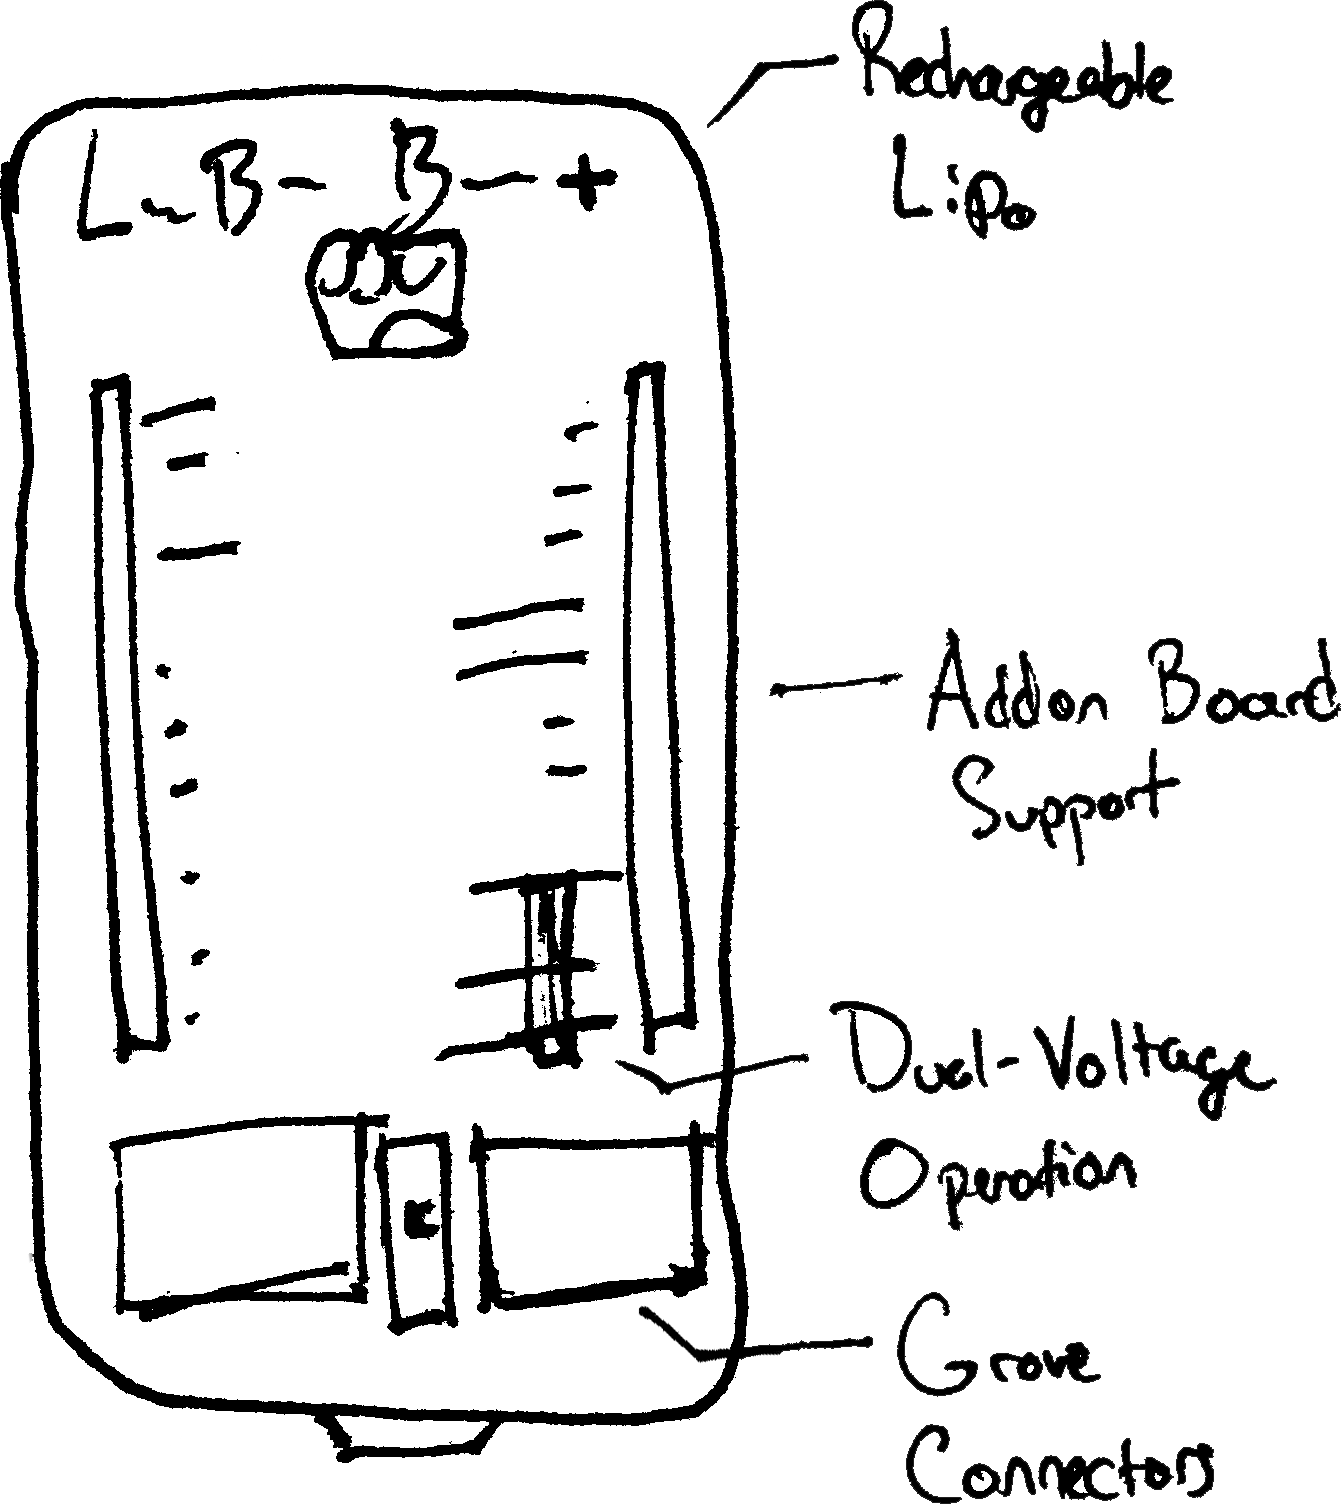 Rechargeable
LiPo
L-B- B-+
Addon Board
Support
Dual-Voltage
Operation
Grove
Connectors